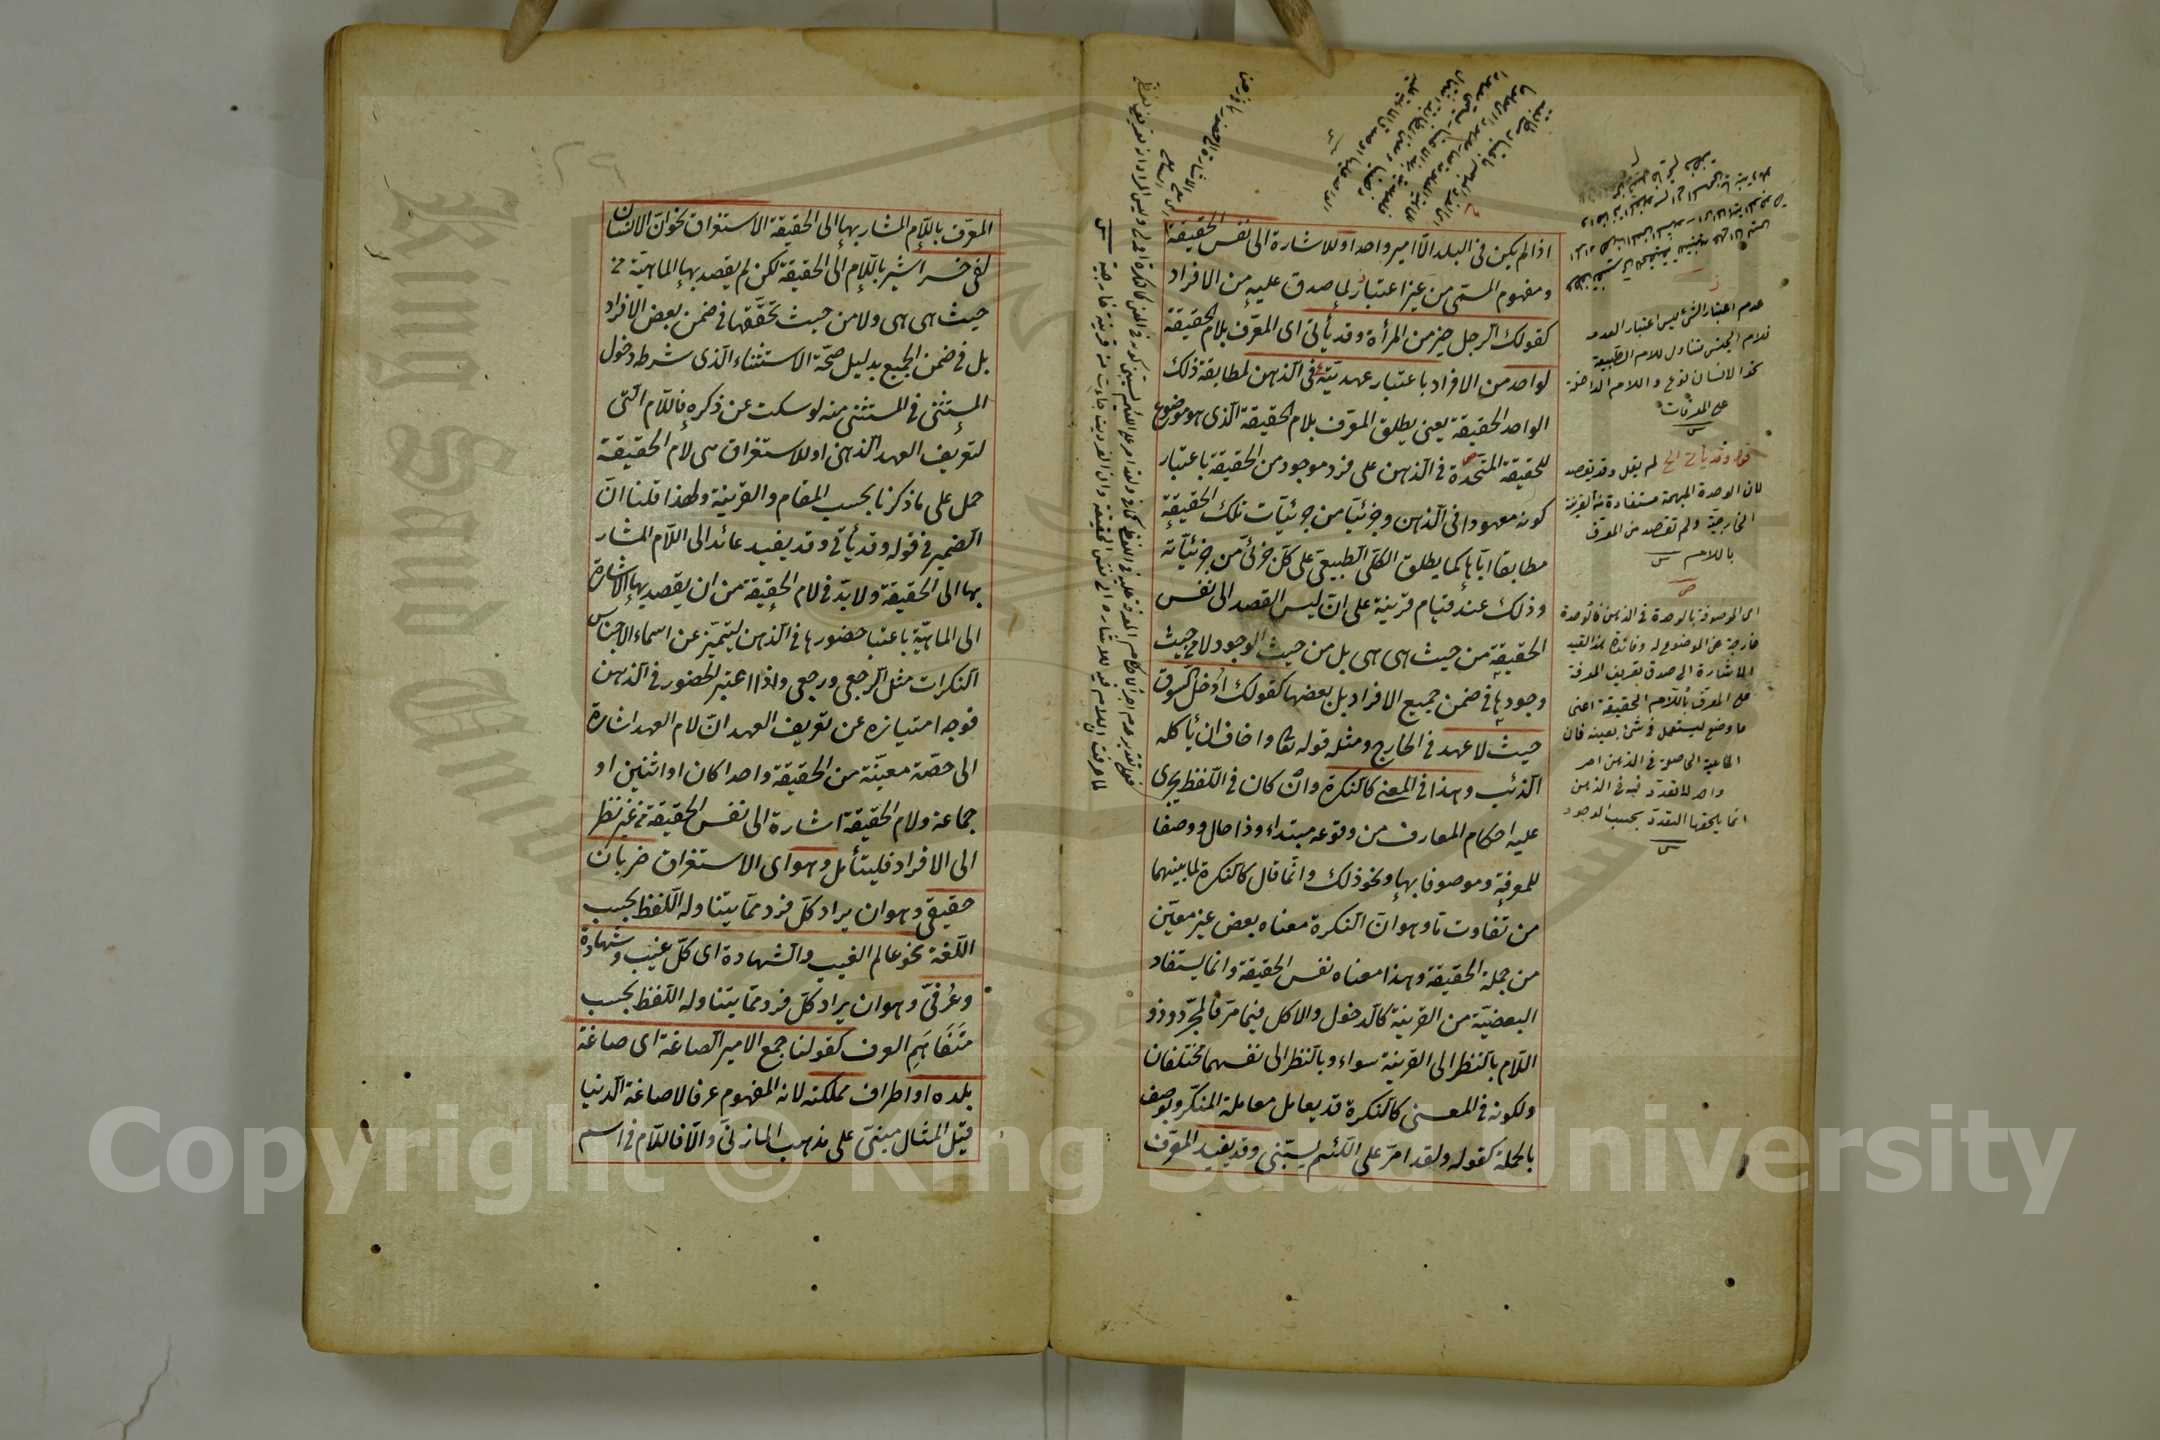 اذا لم يكن فى البلد الا امير واحد او للاشارة الى نفس الحقيقة
ومفهوم المسمى من غير اعتبار لما صدق عليه من الافراد
كقولك الرجل خير من المرأة وقد يأتى اى المعرف بلام الحقيقة
لواحد من الافراد باعتبار عهديته فى الذهن لمطابقة ذلك
الواحد الحقيقة يعنى يطلق المعرف بلام الحقيقة الذى هو موضوع
للحقيقة المتحدة فى الذهن على فرد موجود من الحقيقة باعتبار
كونه معهودا فى الذهن وجزئيا من جزئيات تلك الحقيقة
مطابقا اياها كما يطلق الكلى الطبيعى على كل جزئى من جزئياته
وذلك عند قيام قرينة على ان ليس القصد الى نفس
الحقيقة من حيث هى هى بل من حيث الوجود لا من حيث
وجودها فى ضمن جميع الافراد بل بعضها كقولك ادخل السوق
حيث لا عهد فى الخارج ومثله قوله تعا واخاف ان يأكله
الذئب وهذا فى المعنى كالنكرة وان كان فى اللفظ يجرى
عليه احكام المعارف من وقوعه مبتداء وذا حال ووصفا
للمعرفة وموصوفا بها ونحو ذلك وانما قال كالنكرة لما بينهما
من تفاوت ما وهو ان النكرة معناه بعض غير معين
من جملة الحقيقة وهذا معناه نفس الحقيقة وانما يستفاد
البعضية من القرينة كالدخول والاكل فيما مر فالمجرد وذو
اللام بالنظر الى القرينة سواء وبالنظر الى نفسهما مختلفان
ولكونه فى المعنى كالنكرة قد يعامل معاملة المنكر ويوصف
بالجملة كقوله ولقد امر على اللئيم يسبنى وقد يفيد المعرف
عدم اعتبار الشئ ليس اعتبار العدم
فلام الجنس متناول للام الطبيعة
نحو الانسان نوع واللام الداخلة
على المعرفات
قوله وقد يأتى الخ لم يقل وقد يقصد
لان الوحدة المبهمة مستفادة من القرينة
الخارجية ولم تقصد من المعرف
باللام
اى الموصوفة بالوحدة فى الذهن فالوحدة
خارجة عن الموضوع له وفائدة هذا القيد
الاشارة الى صدق تعريف المعرفة
على المعرف باللام الحقيقة اعنى
ما وضع ليستعمل فى شئ بعينه فان
الماهية الحاصلة فى الذهن امر
واحد لا تعدد فيه فى الذهن
انما يلحقها التعدد بحسب الوجود
المعرف باللام المشار بها الى الحقيقة الاستغراق نحو ان الانسان
لفى خسر اشير باللام الى الحقيقة لكن لم يقصد بها الماهية من
حيث هى هى ولا من حيث تحققها فى ضمن بعض الافراد
بل فى ضمن الجميع بدليل صحة الاستثناء الذى شرط دخول
المستثنى فى المستثنى منه لو سكت عن ذكره فاللام التى
لتعريف العهد الذهنى او للاستغراق هى لام الحقيقة
حمل على ما ذكرنا بحسب المقام والقرينة ولهذا قلنا ان
الضمير فى قوله وقد يأتى وقد يفيد عائد الى اللام المشار
بها الى الحقيقة ولا بد فى لام الحقيقة من ان يقصد بها الاشارة
الى الماهية باعتبا حضورها فى الذهن ليتميز عن اسماء الاجناس
النكرات مثل الرجعى ورجعى واذا اعتبر الحضور فى الذهن
فوجه امتيازه عن تعريف العهد ان لام العهد اشارة
الى حصة معينة من الحقيقة واحدا كان او اثنين او
جماعة ولام الحقيقة اشارة الى نفس الحقيقة من غير نظر
الى الافراد فليتأمل وهو اى الاستغراق ضربان
حقيقى وهو ان يراد كل فرد مما يتناوله اللفظ بحسب
اللغة نحو عالم الغيب والشهادة اى كل غيب وشهادة
وعرفى وهو ان يراد كل فرد مما يتناوله اللفظ بحسب
متفاهم العرف كقولنا جمع الامير الصاغة اى صاغة
بلده او اطراف مملكته لانه المفهوم عرفا لا صاغة الدنيا
قيل المثال مبنى على مذهب المازنى والا فاللام فى اسم
Copyright © King Saud University